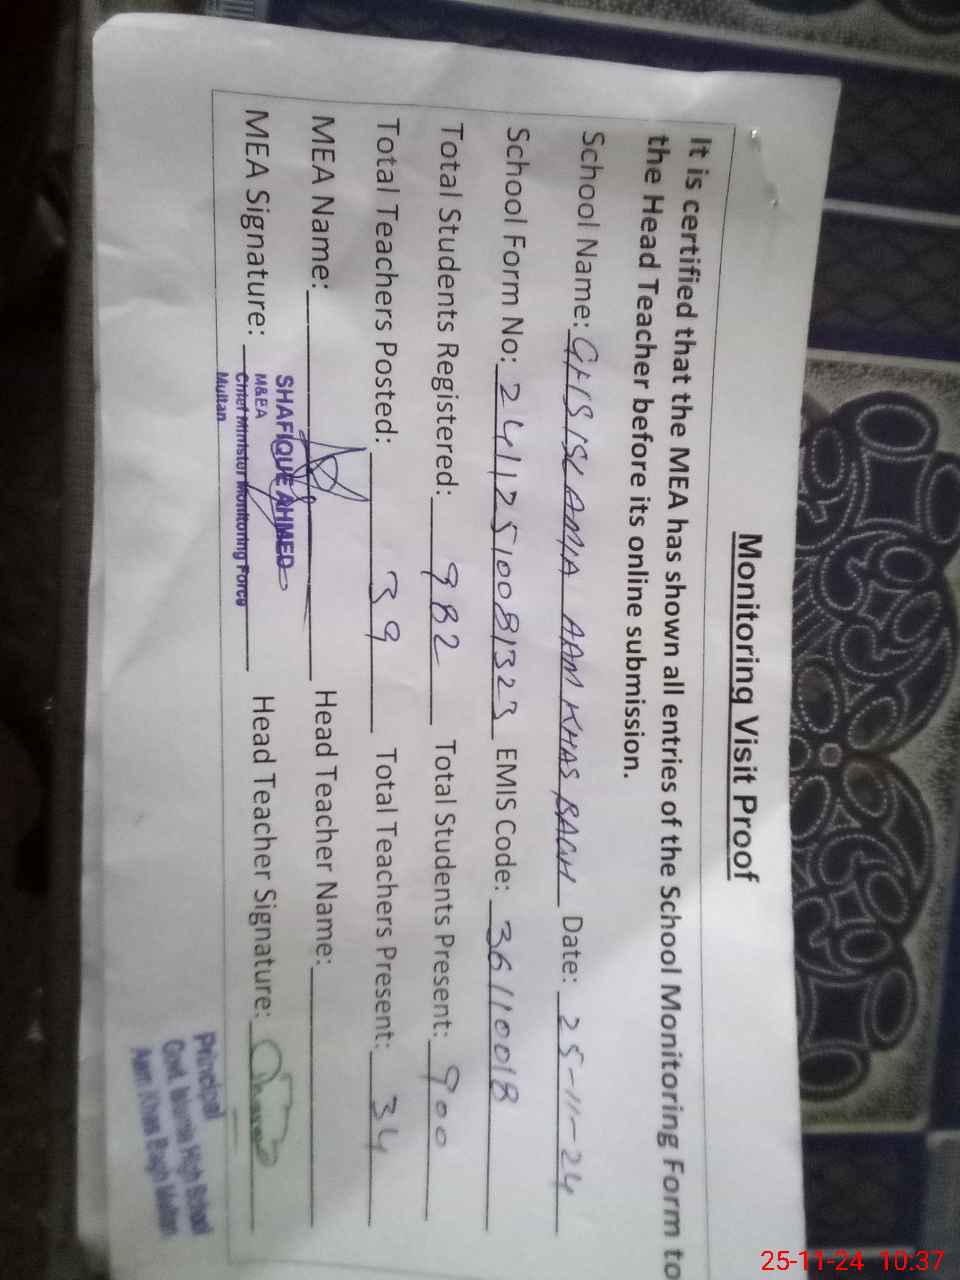 Monitoring Visit Proof
It is certified that the MEA has shown all entries of the School Monitoring Form to
the Head Teacher before its online submission.
School Name: GHS ISLAMIA AAM KHAS BAGH Date: 25-11-24
School Form No: 24112510081323 EMIS Code: 36110018
Total Students Registered: 982 Total Students Present: 900
Total Teachers Posted: 39 Total Teachers Present: 34
MEA Name: Head Teacher Name:
MEA Signature: Head Teacher Signature:
SHAFIQUE AHMED
M&EA
Chief Minister Monitoring Force
Multan
Principal
Govt. Islamia High School
Aam Khas Bagh Multan
25-11-24 10:37